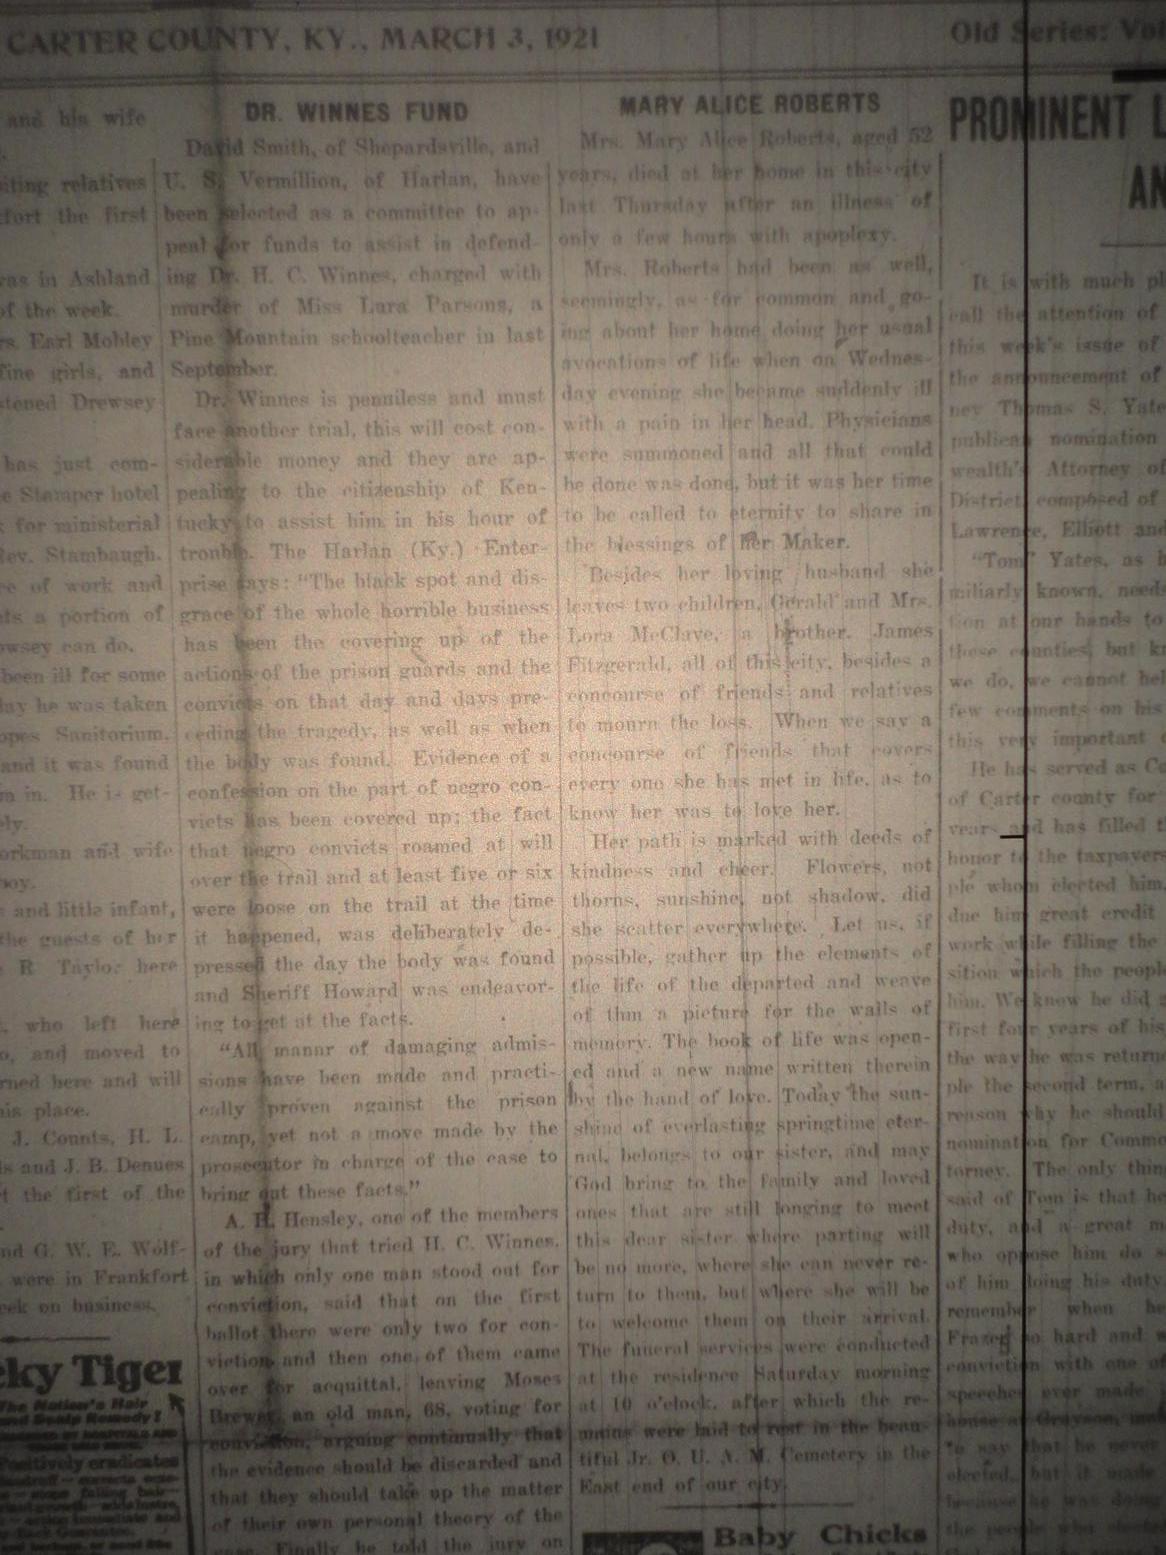 CARTER COUNTY, KY., MARCH 3, 1921
Old Series: Vol
and his wife
iting relatives
fort the first
was in Ashland
of the week.
rs. Earl Mobley
fine girls, and
stened Drewsey
has just com-
e Stamper hotel
for ministerial
Rev. Stambaugh.
ce of work and
ts a portion of
wsey can do.
been ill for some
day he was taken
opes Sanitorium.
and it was found
m in. He is get-
ly.
orkman and wife
boy.
and little infant,
the guests of her
R Taylor here
, who left here
o, and moved to
rned here and will
his place.
J. Counts, H. L.
s and J. B. Denues
t the first of the
nd G. W. E. Wolf-
were in Frankfort
eek on business.
ky Tiger
The Nation's Hair
and Scalp Remedy!
Positively eradicates
DR. WINNES FUND
David Smith, of Shepardsville, and
U. S. Vermillion, of Harlan, have
been selected as a committee to ap-
peal for funds to assist in defend-
ing Dr. H. C. Winnes, charged with
murder of Miss Lura Parsons, a
Pine Mountain schoolteacher in last
September.
Dr. Winnes is penniless and must
face another trial, this will cost con-
siderable money and they are ap-
pealing to the citizenship of Ken-
tucky to assist him in his hour of
trouble. The Harlan (Ky.) Enter-
prise says: "The black spot and dis-
grace of the whole horrible business
has been the covering up of the
actions of the prison guards and the
convicts on that day and days pre-
ceding the tragedy, as well as when
the body was found. Evidence of a
confession on the part of negro con-
victs has been covered up; the fact
that negro convicts roamed at will
over the trail and at least five or six
were loose on the trail at the time
it happened, was deliberately de-
pressed the day the body was found
and Sheriff Howard was endeavor-
ing to get at the facts.
"All mannr of damaging admis-
sions have been made and practi-
cally proven against the prison
camp, yet not a move made by the
prosecutor in charge of the case to
bring out these facts."
A. H. Hensley, one of the members
of the jury that tried H. C. Winnes,
in which only one man stood out for
conviction, said that on the first
ballot there were only two for con-
viction and then one of them came
over for acquittal, leaving Moses
Brewer, an old man, 68, voting for
conviction, arguing continually that
the evidence should be discarded and
that they should take up the matter
of their own personal theory of the
case. Finally he told the jury on
MARY ALICE ROBERTS
Mrs. Mary Alice Roberts, aged 52
years, died at her home in this city
last Thursday after an illness of
only a few hours with apoplexy.
Mrs. Roberts had been as well,
seemingly, as for common and go-
ing about her home doing her usual
avocations of life when on Wednes-
day evening she became suddenly ill
with a pain in her head. Physicians
were summoned and all that could
be done was done, but it was her time
to be called to eternity to share in
the blessings of her Maker.
Besides her loving husband she
leaves two children, Gerald and Mrs.
Lora McClave, a brother, James
Fitzgerald, all of this city, besides a
concourse of friends and relatives
to mourn the loss. When we say a
concourse of friends that covers
every one she has met in life, as to
know her was to love her.
Her path is marked with deeds of
kindness and cheer. Flowers, not
thorns, sunshine, not shadow, did
she scatter everywhere. Let us, if
possible, gather up the elements of
the life of the departed and weave
of thm a picture for the walls of
memory. The book of life was open-
ed and a new name written therein
by the hand of love. Today the sun-
shine of everlasting springtime eter-
nal, belongs to our sister, and may
God bring to the family and loved
ones that are still longing to meet
this dear sister where parting will
be no more, where she can never re-
turn to them, but where she will be
to welcome them on their arrival.
The funeral services were conducted
at the residence Saturday morning
at 10 o'clock, after which the re-
mains were laid to rest in the beau-
tiful Jr. O. U. A. M. Cemetery in the
East end of our city.
Baby Chicks
PROMINENT L
AN
It is with much pl
call the attention of
this week's issue of
the announcement of
ney Thomas S. Yate
publican nomination
wealth's Attorney of
District composed of
Lawrence, Elliott and
"Tom" Yates, as h
miliarly known, needs
tion at our hands to
these counties, but kn
we do, we cannot hel
few comments on his
this very important
He has served as Co
of Carter county for
years and has filled t
honor to the taxpayers
ple whom elected him,
due him great credit
work while filling the
sition which the people
him. We know he did
first four years of his
the way he was return
ple the second term, a
reason why he should
nomination for Commo
torney. The only thin
said of Tom is that he
duty, and a great m
who oppose him do s
of him doing his duty
remember when he
Frazer so hard and w
conviction with one of
speeches ever made
house at Grayson,
to say that he never
elected, but it made
because he was doing
the people who elected